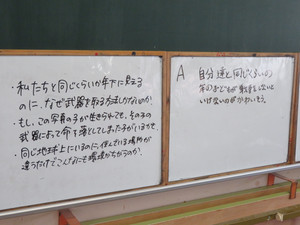 ・私たちと同じくらいか年下に見える
のに、なぜ武器を取る方法しかないのか。
・もし、この写真の子が生きられても、その子の
武器によって命を落としてしまった子がいるかも。
・同じ地球上にいるのに、住んでいる場所が
違うだけでこんなにも環境がちがうのか。
A 自分達と同じくらいの
子どもが戦争をしないと
いけないのがかわいそう。